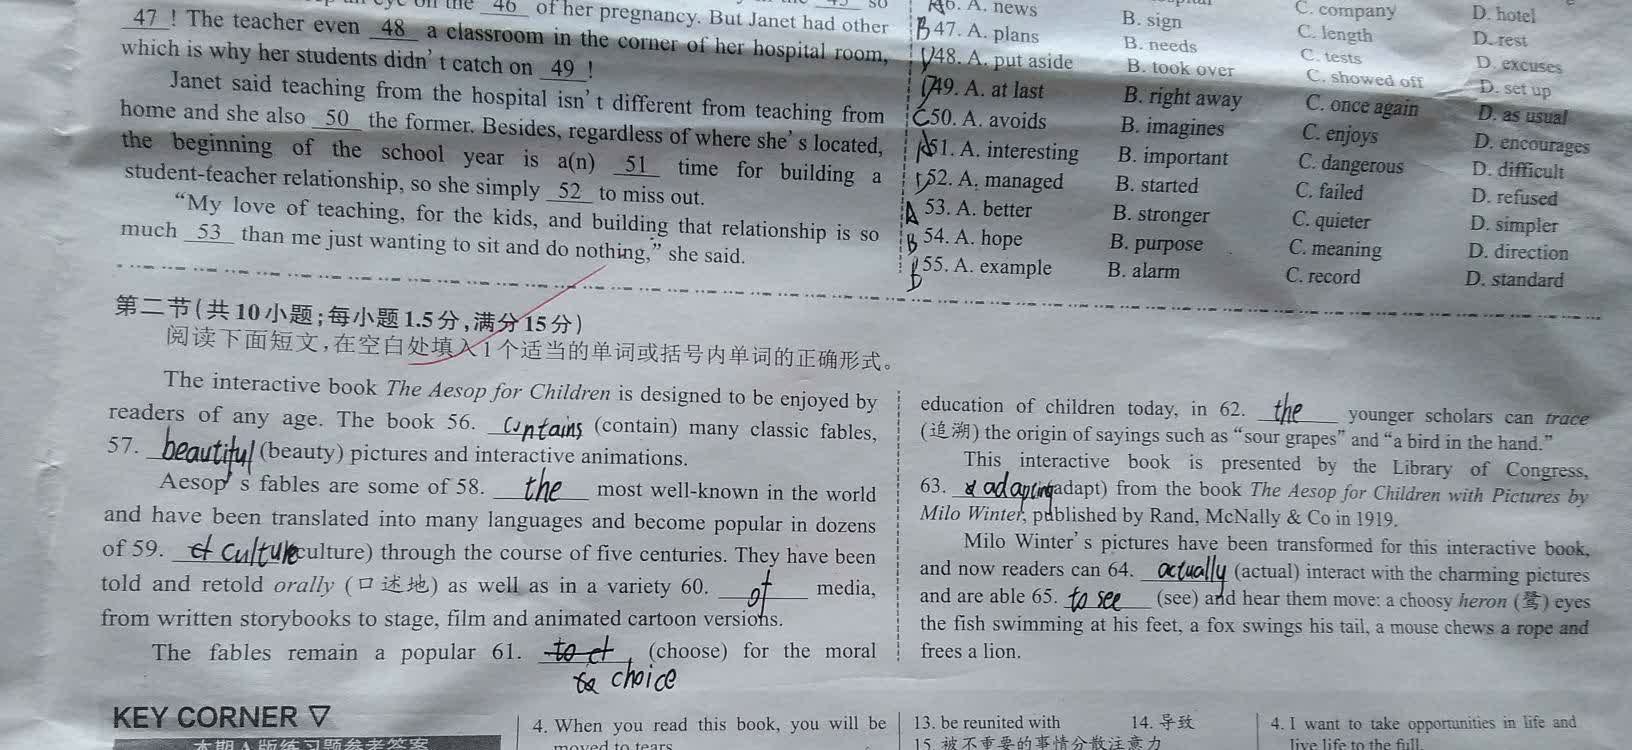 46 of her pregnancy. But Janet had other
47 ! The teacher even 48 a classroom in the corner of her hospital room,
which is why her students didn't catch on 49 !
Janet said teaching from the hospital isn't different from teaching from
home and she also 50 the former. Besides, regardless of where she's located,
the beginning of the school year is a(n) 51 time for building a
student-teacher relationship, so she simply 52 to miss out.
"My love of teaching, for the kids, and building that relationship is so
much 53 than me just wanting to sit and do nothing," she said.
A. news B. sign C. company D. hotel
B 47. A. plans B. needs C. length D. rest
48. A. put aside B. took over C. tests D. excuses
49. A. at last B. right away C. showed off D. set up
C 50. A. avoids B. imagines C. once again D. as usual
51. A. interesting B. important C. enjoys D. encourages
52. A. managed B. started C. dangerous D. difficult
A 53. A. better B. stronger C. failed D. refused
B 54. A. hope B. purpose C. quieter D. simpler
55. A. example B. alarm C. meaning D. direction
C. record D. standard
第二节(共10小题;每小题1.5分,满分15分)
阅读下面短文,在空白处填入1个适当的单词或括号内单词的正确形式。
The interactive book The Aesop for Children is designed to be enjoyed by
readers of any age. The book 56. contains (contain) many classic fables,
57. beautiful (beauty) pictures and interactive animations.
Aesop's fables are some of 58. the most well-known in the world
and have been translated into many languages and become popular in dozens
of 59. culture (culture) through the course of five centuries. They have been
told and retold orally (口述地) as well as in a variety 60. of media,
from written storybooks to stage, film and animated cartoon versions.
The fables remain a popular 61. (choose) for the moral
choice
education of children today, in 62. the younger scholars can trace
(追溯) the origin of sayings such as "sour grapes" and "a bird in the hand."
This interactive book is presented by the Library of Congress,
63. adapting (adapt) from the book The Aesop for Children with Pictures by
Milo Winter, published by Rand, McNally & Co in 1919.
Milo Winter's pictures have been transformed for this interactive book,
and now readers can 64. actually (actual) interact with the charming pictures
and are able 65. to see (see) and hear them move: a choosy heron (鹭) eyes
the fish swimming at his feet, a fox swings his tail, a mouse chews a rope and
frees a lion.
KEY CORNER ▽
本期A版练习题参考答案
4. When you read this book, you will be
moved to tears
13. be reunited with 14. 导致
15. 被不重要的事情分散注意力
4. I want to take opportunities in life and
live life to the full.